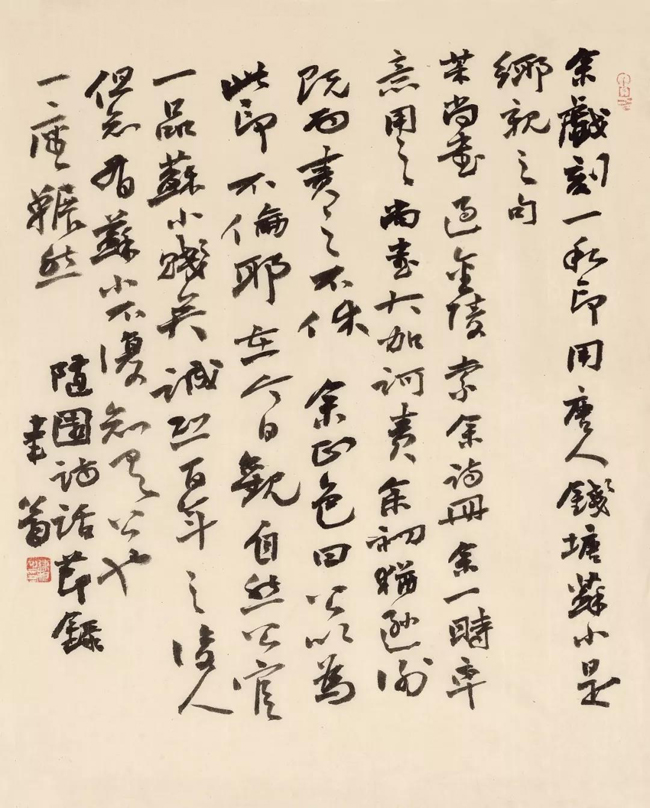 余戲刻一私印用唐人錢塘蘇小是
鄉親之句
某尚書過金陵索余詩冊余一時率
意用之尚書大加訶責余初猶遜謝
既而責之不休余正色曰公以為
此印不倫耶在今日觀自然公官
一品蘇小賤矣誠恐百年之後人
但知有蘇小不復知有公也
一座輾然
隨園詩話節錄